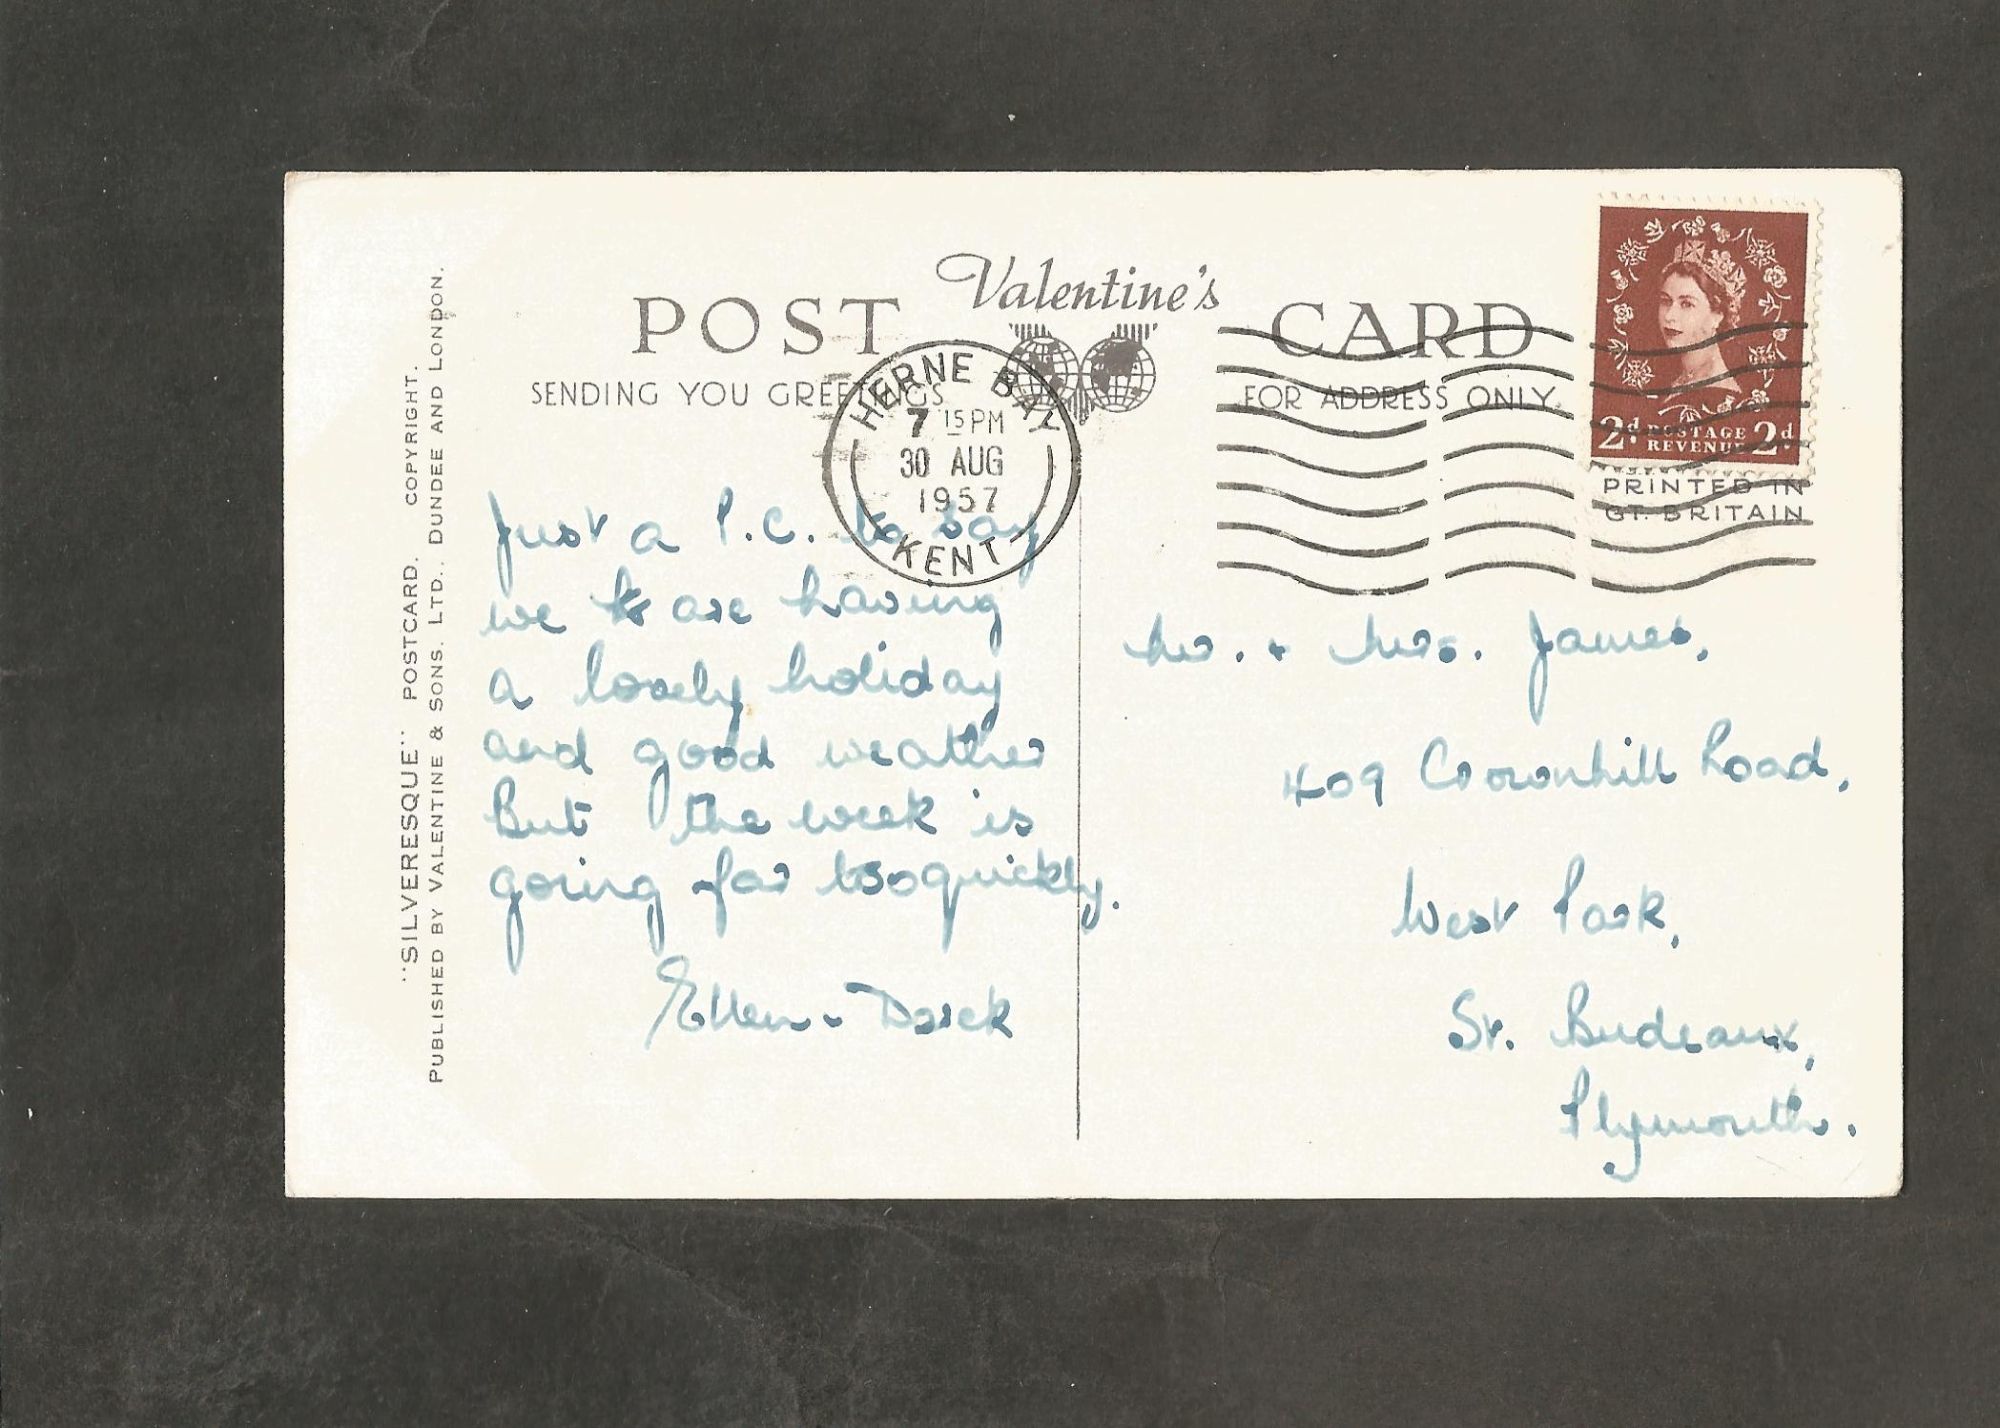 "SILVERESQUE" POSTCARD. COPYRIGHT.
PUBLISHED BY VALENTINE & SONS. LTD., DUNDEE AND LONDON.
POST Valentine's CARD
SENDING YOU GREETINGS
FOR ADDRESS ONLY
HERNE BAY
7 15 PM
30 AUG
1957
KENT
2d. POSTAGE REVENUE 2d.
PRINTED IN
GT. BRITAIN
Just a P.C. to say
we are having
a lovely holiday
and good weather
But the week is
going far too quickly.
Ellen - Dorck
Mr. + Mrs. James,
409 Crownhill Road,
West Park,
St. Budeaux,
Plymouth.